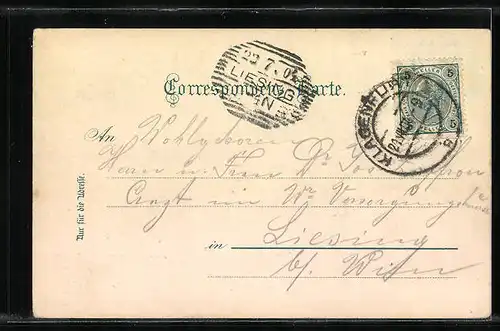 Correspondenz-Karte.
LIESING
KLAGENFURT
5 5
An Wohlgeboren
Herrn u. Frau Dr
Arzt im Wr Versorgungsheim
in Liesing
b/ Wien
Nur für die Adresse.